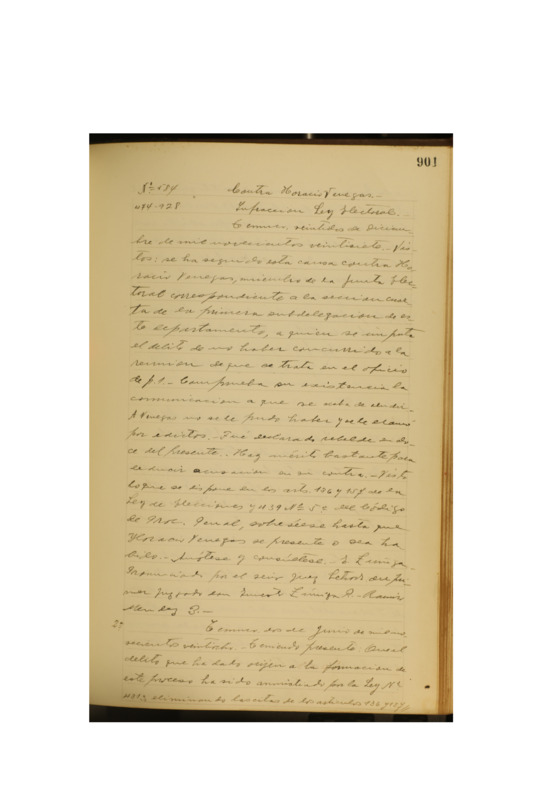 901
Nº 594 Contra Horacio Venegas.-
Infraccion Ley Electoral.-
Temuco, veintidos de Diciem-
bre de mil novecientos veintisiete.- Vis-
tos: se ha seguido esta causa contra Ho-
racio Venegas, miembro de la Junta Elec-
toral correspondiente a la seccion cuar-
ta de la primera subdelegacion de es-
te departamento, a quien se imputa
el delito de no haber concurrido a la
reunion de que se trata en el oficio
de f. 1.- Comprueba su existencia la
comunicacion a que se acaba de aludir.
A Venegas no se le pudo haber y se le llamó
por edictos.- Fué declarado rebelde en do-
ce del presente.- Hay mérito bastante para
deducir acusacion en su contra.- Visto
lo que se dispone en los arts. 136 y 157 de la
Ley de Elecciones y 439 Nº 5º del Código
de Proc. Penal, sobreséese hasta que
Horacio Venegas se presente o sea ha
bido.- Anótese y consúltese.- E. Zúñiga.
Pronunciada por el señor Juez Letrado del pri-
mer Juzgado don Ernesto Zúñiga R.- Ramir
Mendez B.-
2º Temuco, dos de Junio de mil nove
cientos veintiocho.- Teniendo presente: Que el
delito que ha dado origen a la formacion de
este proceso ha sido amnistiado por la Ley Nº
eliminando las citas de los articulos 136 y 157